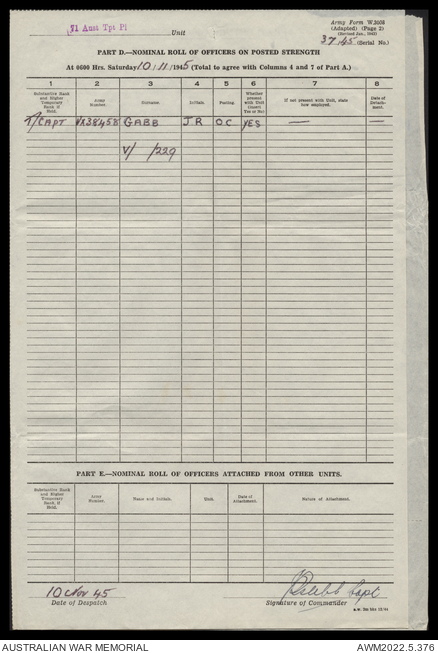 71 Aust Tpt Pl Unit
Army Form W.3008
(Adapted) (Page 2)
(Revised Jan., 1945)
37/45 (Serial No.)
PART D.—NOMINAL ROLL OF OFFICERS ON POSTED STRENGTH
At 0600 Hrs. Saturday 10/11/1945 (Total to agree with Columns 4 and 7 of Part A.)
1 2 3 4 5 6 7 8
Substantive Rank and Higher Temporary Rank if Held. Army Number. Surname. Initials. Posting. Whether present with Unit (insert Yes or No) If not present with Unit, state how employed. Date of Detachment.
T/CAPT VX38458 GABB J R OC YES —
V/ /229
PART E.—NOMINAL ROLL OF OFFICERS ATTACHED FROM OTHER UNITS.
Substantive Rank and Higher Temporary Rank, if Held. Army Number. Name and Initials. Unit. Date of Attachment. Nature of Attachment.
10 Nov 45
Capt
Date of Despatch
Signature of Commander
AUSTRALIAN WAR MEMORIAL
AWM2022.5.376